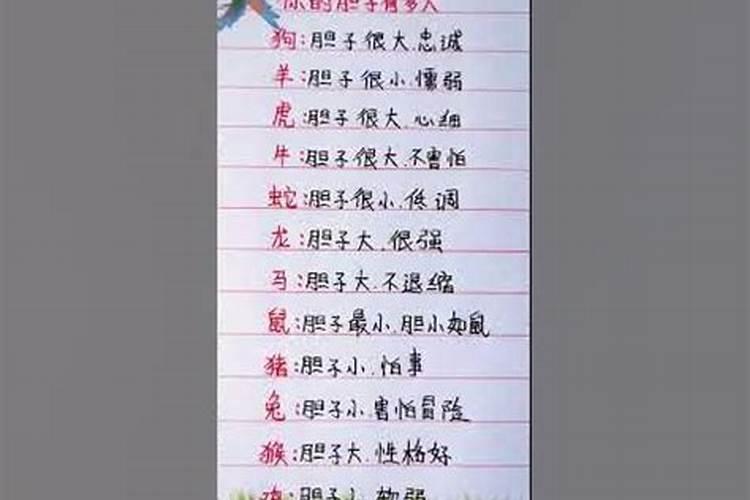 你的胆子有多大
狗:胆子很大.忠诚
羊:胆子很小.懦弱
虎:胆子很大.心细
牛:胆子很大.不害怕
蛇:胆子很小.低调
龙:胆子大.很强
马:胆子大.不退缩
鼠:胆子最小.胆小如鼠
猪:胆子小.怕事
兔:胆子小.害怕冒险
猴:胆子大.性格好
鸡:胆子小.软弱